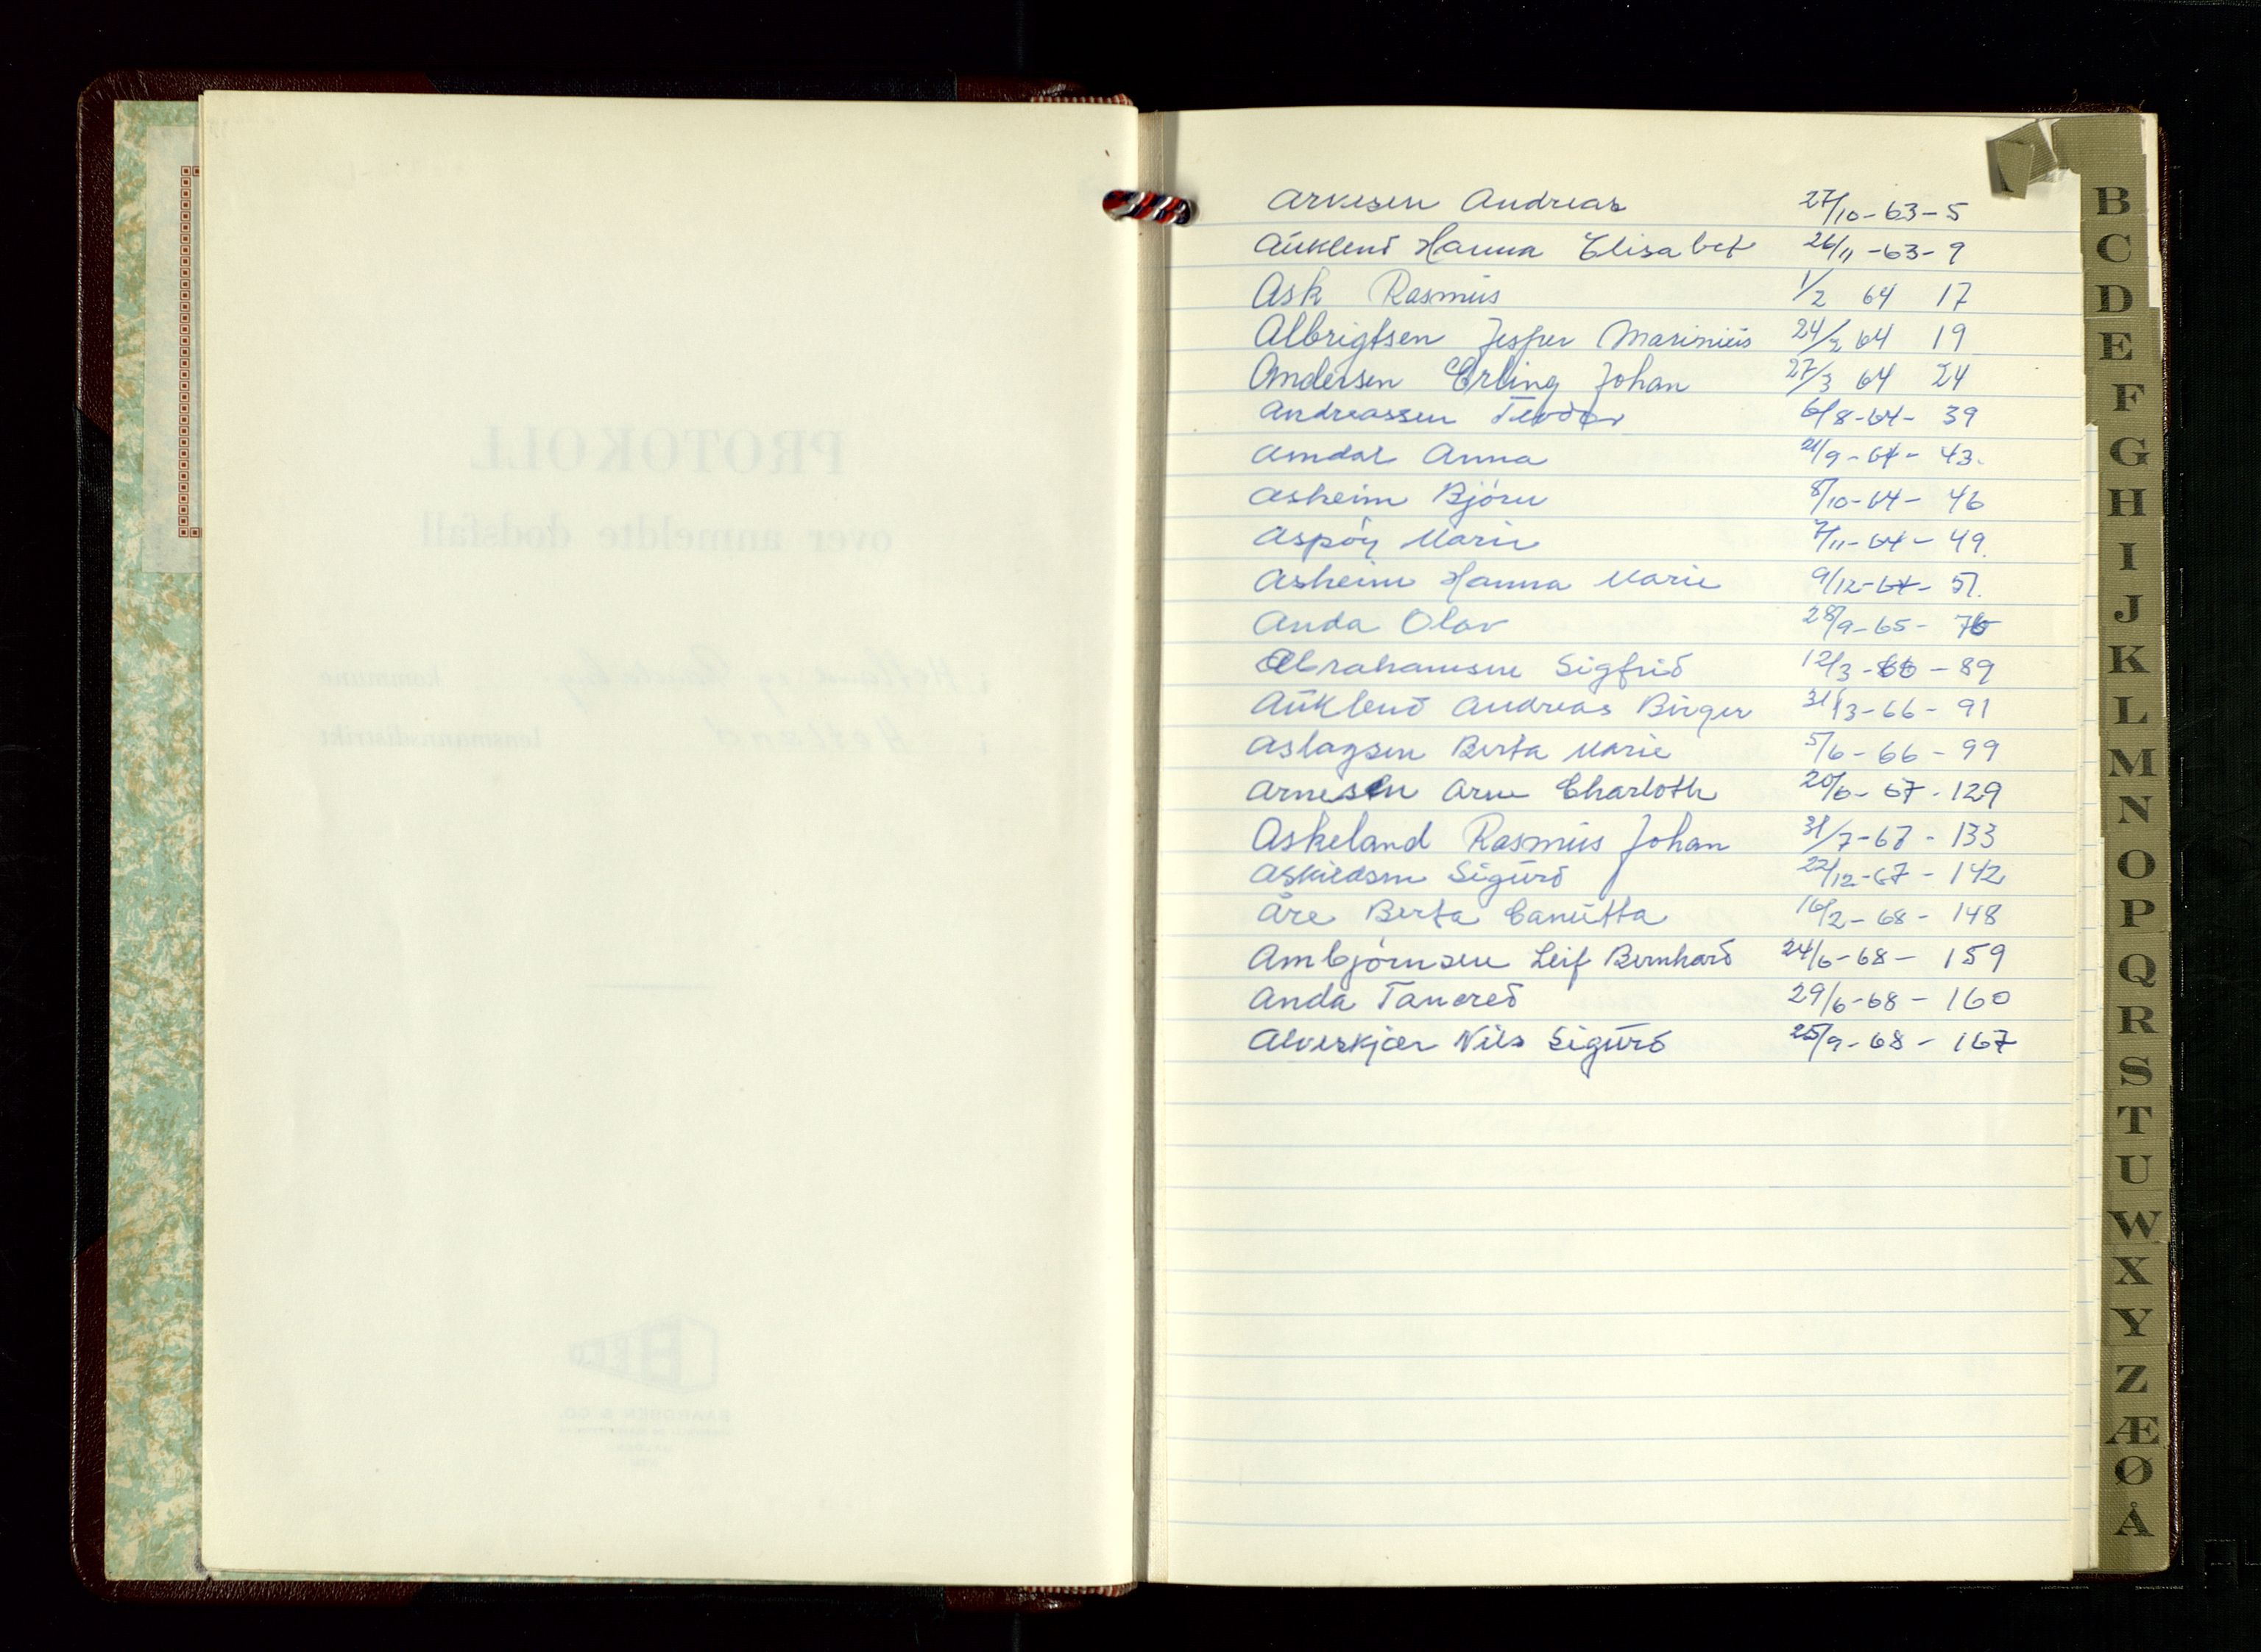 PROTOKOLL
over anmeldte dødsfall
i Hetland og kommune
i Hetland lensmannsdistrikt
Arvesen Andreas 27/10-63-5
Auklend Hanna Elisabet 26/11-63-9
Ask Rasmus 1/2 64 17
Albrigtsen Jesper Marinius 24/2 64 19
Andersen Erling Johan 27/3 64 24
Andreassen Teodor 6/8-64- 39
Amdal Anna 21/9-64- 43.
Asheim Bjórn 8/10-64- 46
Aspöy Marie 7/11-64- 49.
Asheim Hanna Marie 9/12-64- 51.
Anda Olav 28/9-65- 76
Abrahamsen Sigfrid 12/3-66-89
Auklend Andreas Birger 31/3-66-91
Aslagsen Berta Marie 5/6-66-99
Arnesen Arne Charloth 20/6-67-129
Askeland Rasmus Johan 31/7-67-133
Askildsen Sigurd 22/12-67-142
Åre Berta Canutta 16/2-68-148
Ambjörnsen Leif Bernhard 24/6-68-159
Anda Tancred 29/6-68-160
Alveskjær Nils Sigurd 25/9-68-167
B
C
D
E
F
G
H
I
J
K
L
M
N
O
P
Q
R
S
T
U
W
X
Y
Z
Æ
Ø
Å